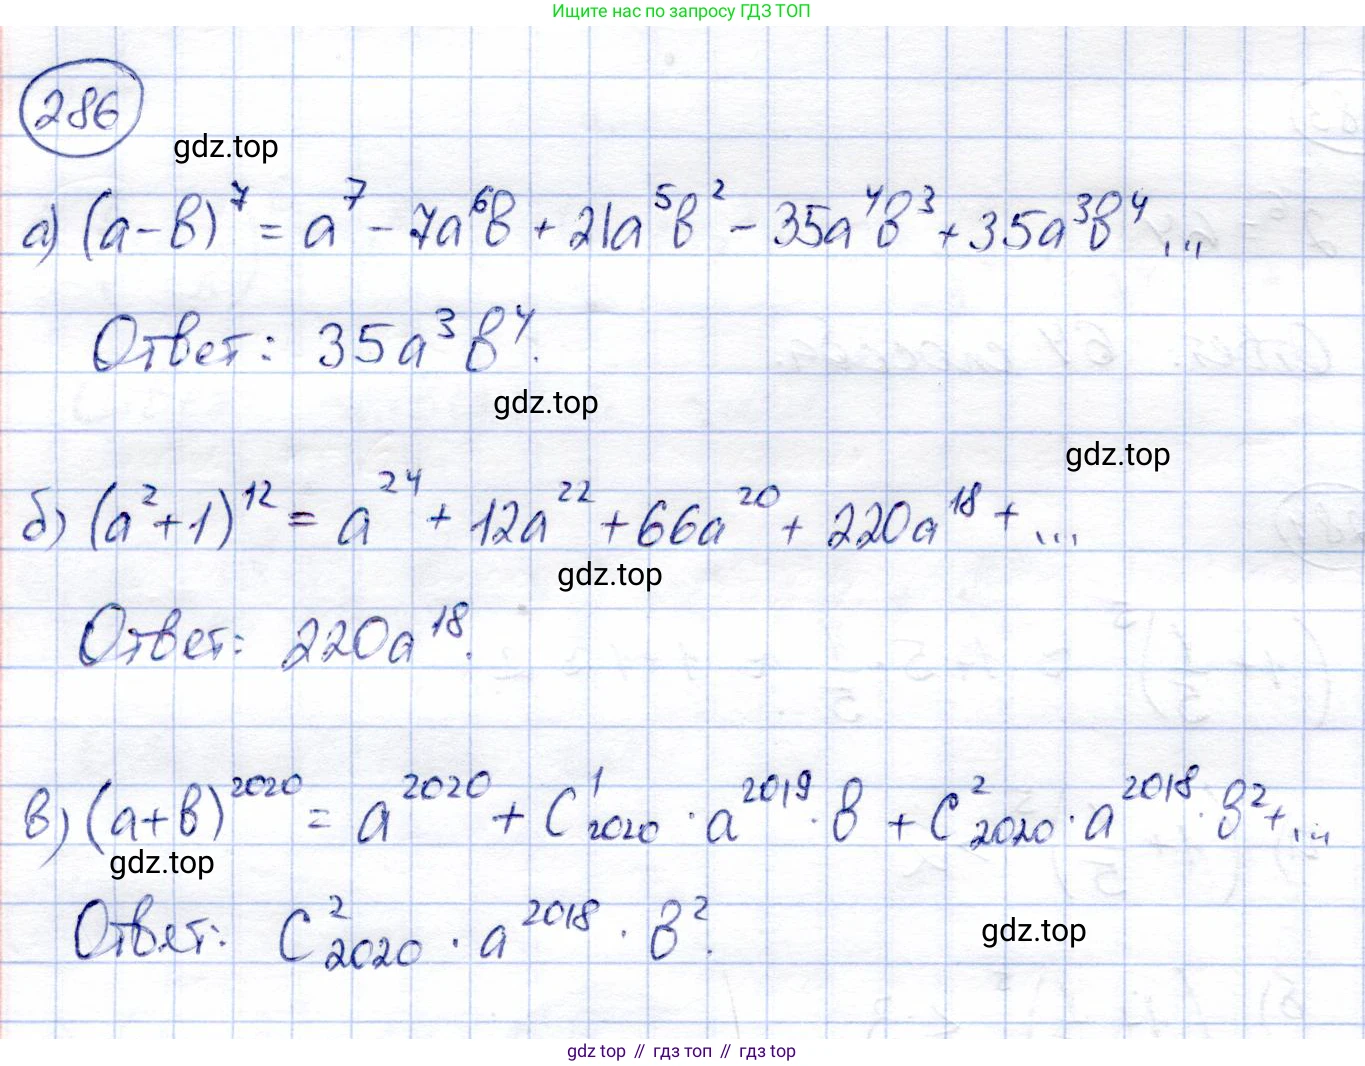 Ищите нас по запросу ГДЗ ТОП
286
gdz.top
а) (a-b)⁷ = a⁷ - 7a⁶b + 21a⁵b² - 35a⁴b³ + 35a³b⁴...
Ответ: 35a³b⁴.
gdz.top
gdz.top
б) (a²+1)¹² = a²⁴ + 12a²² + 66a²⁰ + 220a¹⁸ + ...
gdz.top
Ответ: 220a¹⁸.
в) (a+b)²⁰²⁰ = a²⁰²⁰ + C¹₂₀₂₀ · a²⁰¹⁹ · b + C²₂₀₂₀ · a²⁰¹⁸ · b² + ...
gdz.top
Ответ: C²₂₀₂₀ · a²⁰¹⁸ · b².
gdz.top
gdz top // гдз топ // гдз top